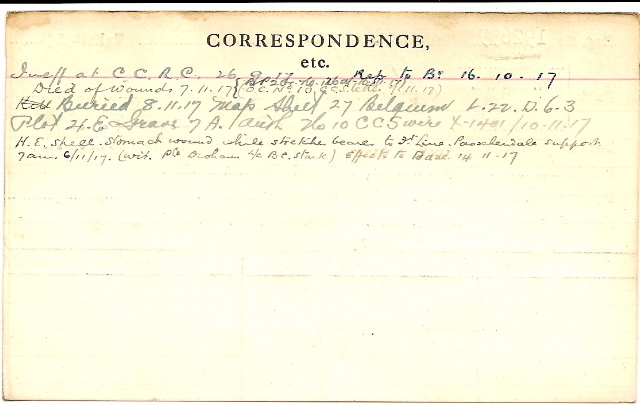 CORRESPONDENCE,
etc.
at C.C.R.C. 26. 9. 17 Rep to Bn 16.10.17
Died of Wounds 7.11.17
Buried 8.11.17 Map Sheet 27 Belgium L.22.D.6.3
Plot 4.E Grave 7A. No 10 CCS wire X-1401/10-11-17
H.E. Shell. Stomach wound while stretcher bearer to Ft Line. Passchendale support
7am. 6/11/17. (wit. Pte B.C. stark) Effects to Base 14.11.17